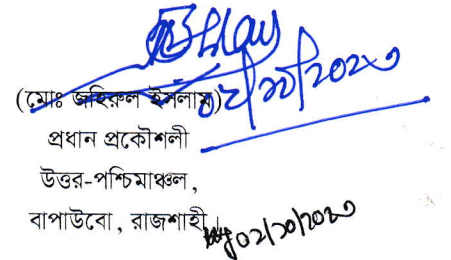 ০২/১০/২০২৩
(মোঃ জহিরুল ইসলাম)
প্রধান প্রকৌশলী
উত্তর-পশ্চিমাঞ্চল,
বাপাউবো, রাজশাহী।
০২/১০/২০২৩